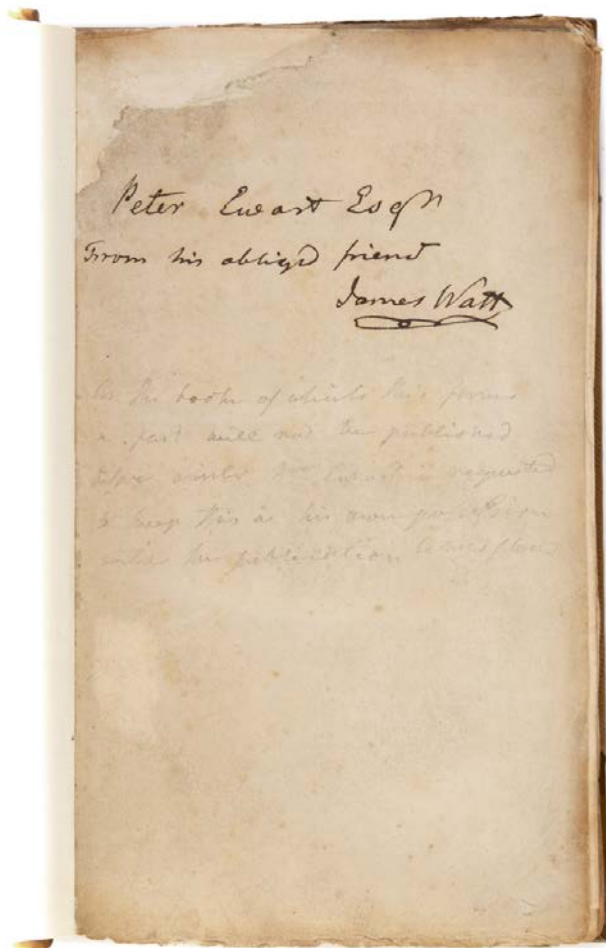 Peter Ewart Esqr
From his obliged friend
James Watt
As the book of which this forms
a part will not be published
before winter Mr Ewart is requested
to keep this in his own possession
until the publication takes place